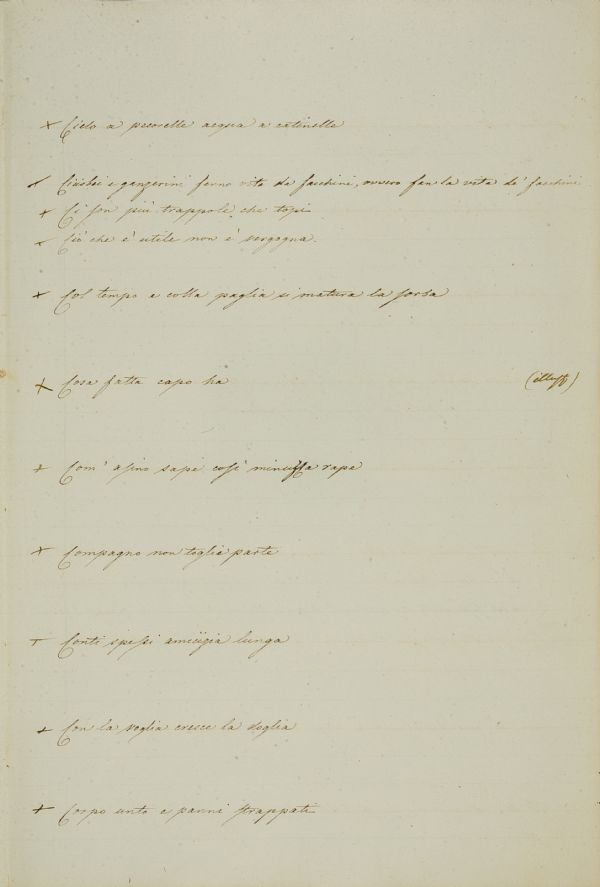 + Cielo a pecorelle acqua a catinelle
+ Cicisbei e ganzerini fanno vita da facchini, ovvero fan la vita de' facchini
+ Ci son più trappole che topi
+ Ciò che è utile non è vergogna.
+ Col tempo e colla paglia si matura la sorba
+ Cosa fatta capo ha (illust)
+ Com' asino sape così minuzza rape
+ Compagno non toglie parte
+ Conti spessi amicizia lunga
+ Con la voglia cresce la doglia
+ Corpo unto e panni strappati